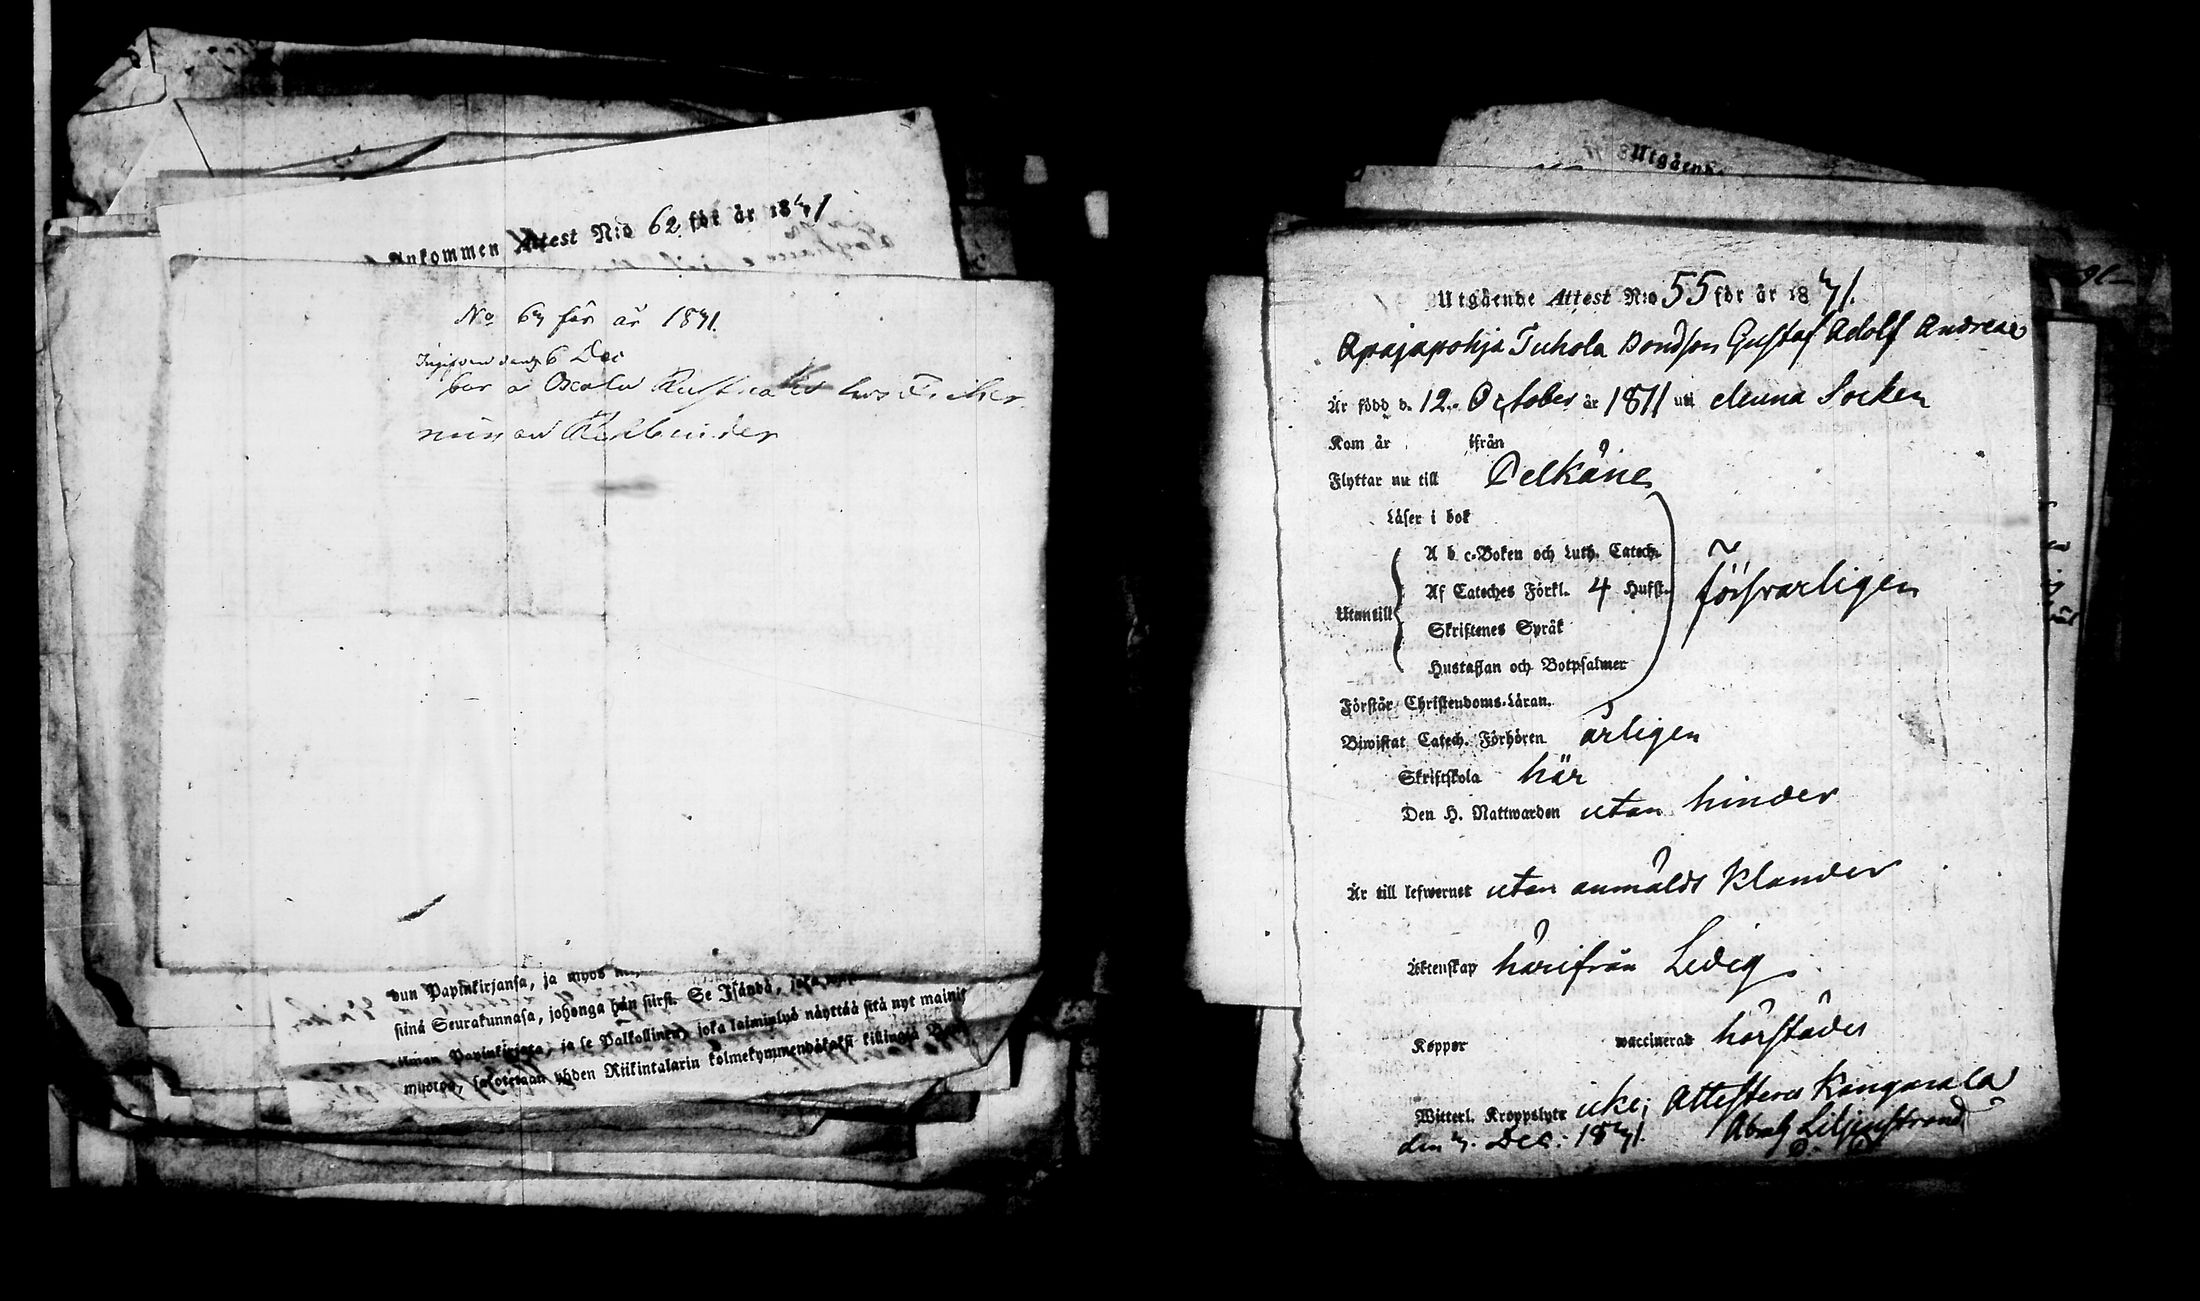 Ankommen Attest N:o 62 för år 1871
No 67 för år 1871.
6 Dec
bor a hos
Rehbinder
dun Papinkirjansa, ja myös
siinä Seurakunnasa, johonga hän siirst. Se Isändä,
ilman Papinkirjata, ja se Palkollinen, joka laiminlyö näyttää sitä nyt mainit
myöten, sakotetaan yhden Riikintalarin kolmekymmendäkaksi killingiä
Utgående
Utgående Attest N:o 55 för år 1871.
Apajapohja Tuhola Bondson Gustaf Adolf Andreae
Är född d. 12. October år 1811 uti denna Socken
Kom år ifrån
Flyttar nu till Pelkäne
Läser i bok
A b c-Boken och Luth. Catech.
Af Cateches Förkl. 4 Hufst.
Utantill försvarligen
Skriftenes Språk
Hustaflan och Botpsalmer
Förstår Christendoms-Läran.
Biwistat Catech. Förhören årligen
Skriftskola här
Den H. Nattwarden utan hinder
Är till lefwernet utan anmäldt klander
Äktenskap härifrån Ledig
Koppor waccinerad härstädes
Witterl. Kroppslyte icke; Attesteras Kangasala
den 7. Dec: 1871. Abrah Liljenstrand